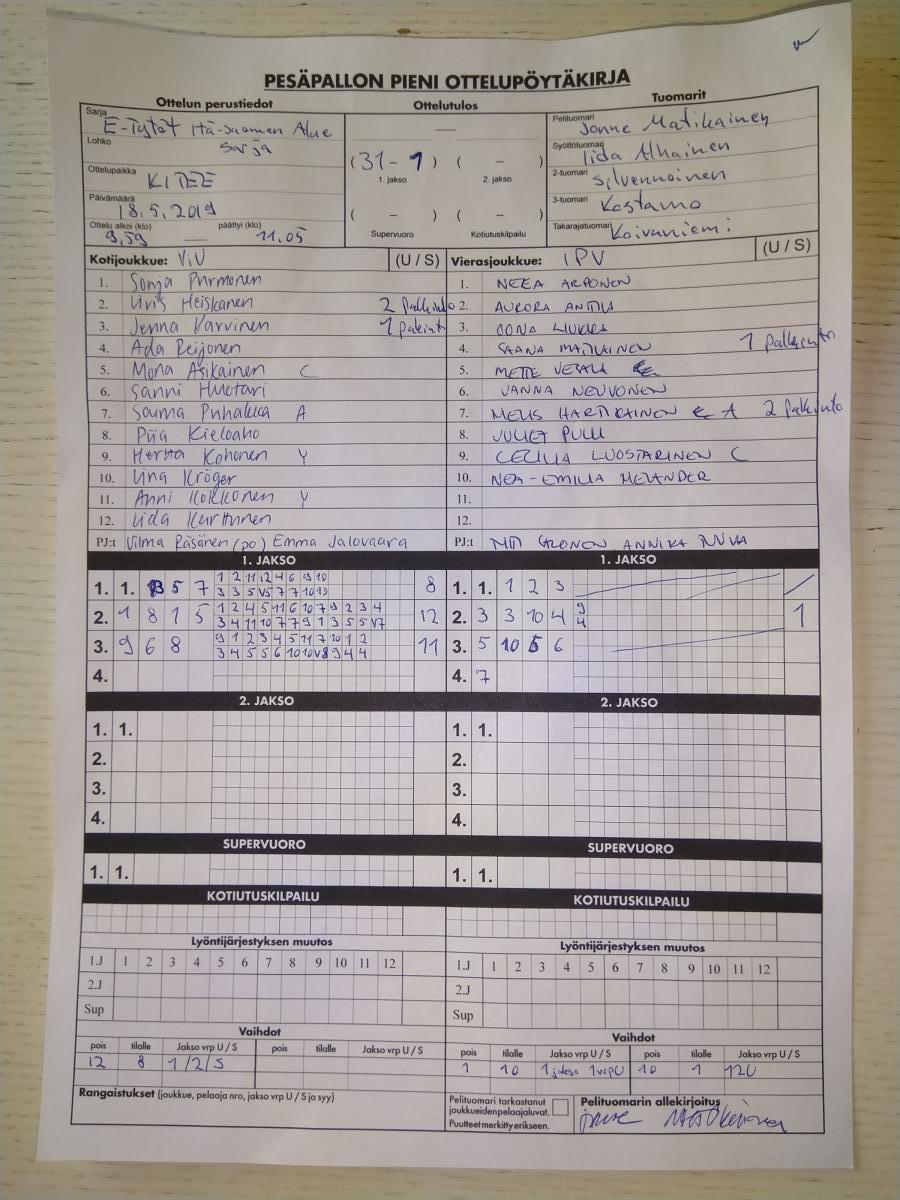 PESÄPALLON PIENI OTTELUPÖYTÄKIRJA
Ottelun perustiedot
Ottelutulos
Tuomarit
Sarja E-Tytöt Itä-Suomen Alue
Lohko sarja
Ottelupaikka KITEE
Päivämäärä 18.5.2019
Ottelu alkoi (klo) päättyi (klo)
9,59 — 11.05
(31 - 1) ( - )
1. jakso 2. jakso
( - ) ( - )
Supervuoro Kotiutuskilpailu
Pelituomari Jonne Matikainen
Syöttötuomari Iida Alhainen
2-tuomari Silvennoinen
3-tuomari Kostamo
Takarajatuomari Koivuniemi
Kotijoukkue: ViU (U / S)
Vierasjoukkue: IPV (U / S)
1. Sonja Purmonen
2. Heiskanen 2 Palkinto
3. Jenna Karvinen 1 palkinto
4. Ada Reijonen
5. Mona Asikainen C
6. Sanni Huotari
7. Saima Puhakka A
8. Piia Kieloaho
9. Hertta Kohonen Y
10. Iina Kröger
11. Anni Kokkonen Y
12. Iida Kurttunen
PJ:t Vilma Räsänen (po) Emma Jalovaara
1. NEEA ARPONEN
2. AURORA ANTTILA
3. OONA LIUKKA
4. SAANA MATIKAINEN 1 palkinto
5. METTE
6. VANNA NEUVONEN
7. HARTIKAINEN A 2 Palkinto
8. JULIET PULLI
9. CECILIA LUOSTARINEN C
10. NEA-EMILIA MELANDER
11.
12.
PJ:t ANNIKA
1. JAKSO
1. 1. 3 5 7
1 2 11 12 4 6 9 10
3 3 5 V5 7 7 10 10
8
2. 1 8 1 5
1 2 4 5 11 6 10 7 9 2 3 4
3 4 11 10 7 7 9 1 3 5 5 V7
12
3. 9 6 8
9 1 2 3 4 5 11 7 10 1 2
3 4 5 5 6 10 10 V8 9 4 4
11
4.
1. JAKSO
1. 1. 1 2 3
2. 3 3 10 4
9
4
1
3. 5 10 5 6
4. 7
2. JAKSO
1. 1.
2.
3.
4.
2. JAKSO
1. 1.
2.
3.
4.
SUPERVUORO
1. 1.
SUPERVUORO
1. 1.
KOTIUTUSKILPAILU
KOTIUTUSKILPAILU
Lyöntijärjestyksen muutos
1.J 1 2 3 4 5 6 7 8 9 10 11 12
2.J
Sup
Lyöntijärjestyksen muutos
1.J 1 2 3 4 5 6 7 8 9 10 11 12
2.J
Sup
Vaihdot
pois tilalle Jakso vrp U / S pois tilalle Jakso vrp U / S
12 8 1/2/S
Vaihdot
pois tilalle Jakso vrp U / S pois tilalle Jakso vrp U / S
1 10 1 jakso 1vrpU 10 1 12U
Rangaistukset (joukkue, pelaaja nro, jakso vrp U / S ja syy)
Pelituomari tarkastanut
joukkueiden pelaajaluvat.
Puutteet merkitty erikseen.
Pelituomarin allekirjoitus